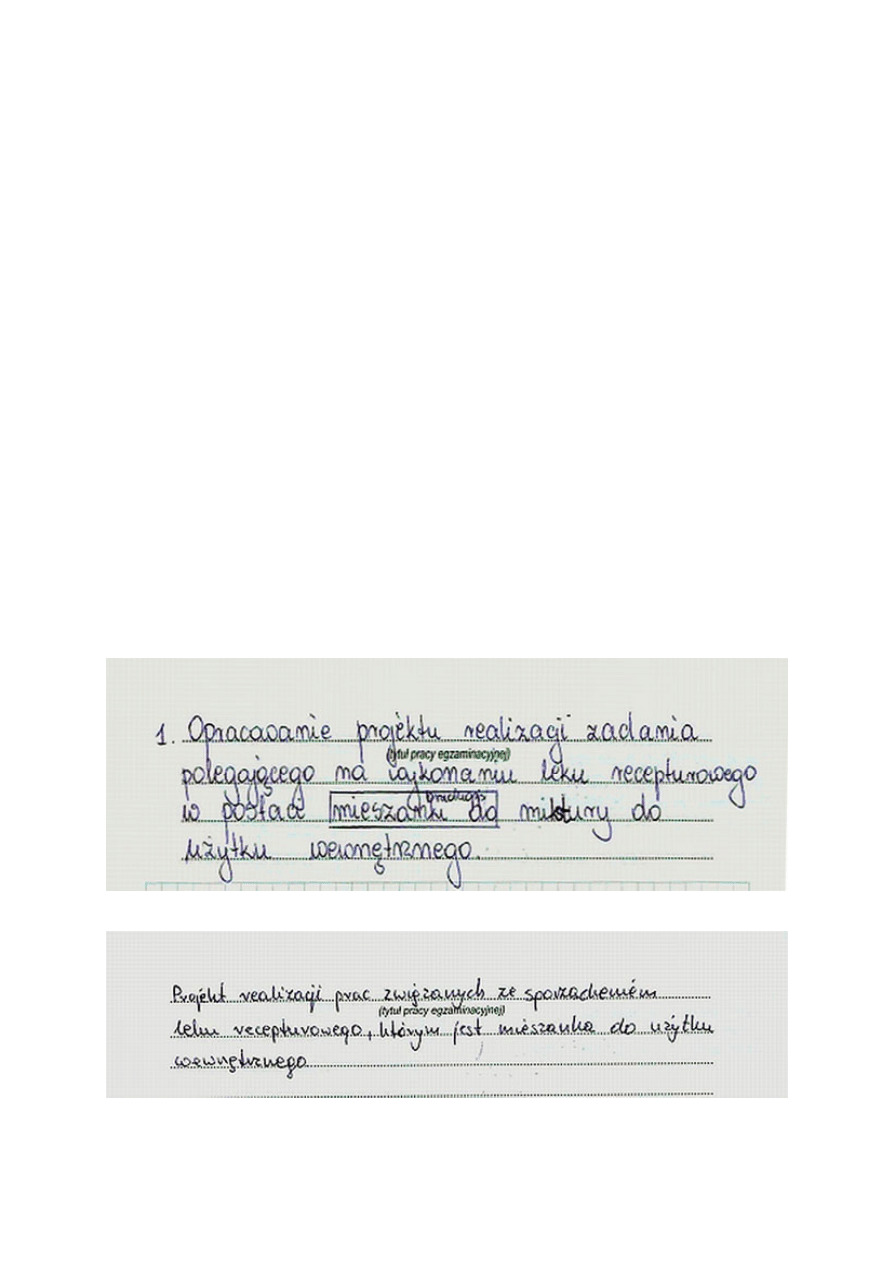 1. Opracowanie projektu realizacji zadania
(tytuł pracy egzaminacyjnej)
polegającego na wykonaniu leku recepturowego
w postaci mieszanki do mikstury do
użytku wewnętrznego.
Projekt realizacji prac związanych ze sporządzeniem
(tytuł pracy egzaminacyjnej)
leku recepturowego, którym jest mieszanka do użytku
wewnętrznego